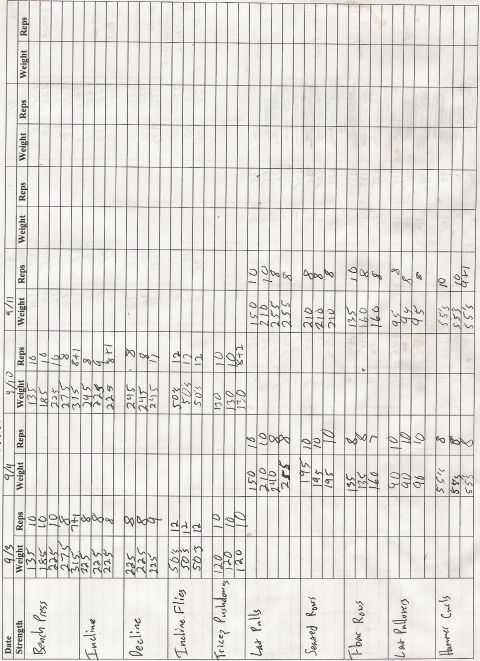 Date 9/3 9/4 9/10 9/11
Strength Weight Reps Weight Reps Weight Reps Weight Reps Weight Reps Weight Reps Weight Reps
Bench Press 135 10 135 10
185 10 185 10
225 10 225 10
275 8 275 8
315 7+1 315 8+1
Incline 225 8 245 8
225 8 225 9
225 8 225 8+1
Decline 225 8 245 8
225 8 245 8
225 9 245 11
Incline Flies 50's 12 50's 12
50's 12 50's 12
50's 12 50's 12
Tricep Pushdowns 120 10 130 10
120 10 130 10
120 10 130 8+2
Lat Pulls 150 10 150 10
210 10 210 10
240 8 255 8
255 8 255 8
Seated Rows 195 10 210 8
195 10 210 8
195 10 210 8
T bar Rows 135 8 135 10
135 8 160 8
160 7 160 8
Lat Pullovers 90 10 95 8
90 10 95 8
90 10 95 8
Hammer Curls 55's 8 55's 10
55's 8 55's 10
55's 8 55's 9+1